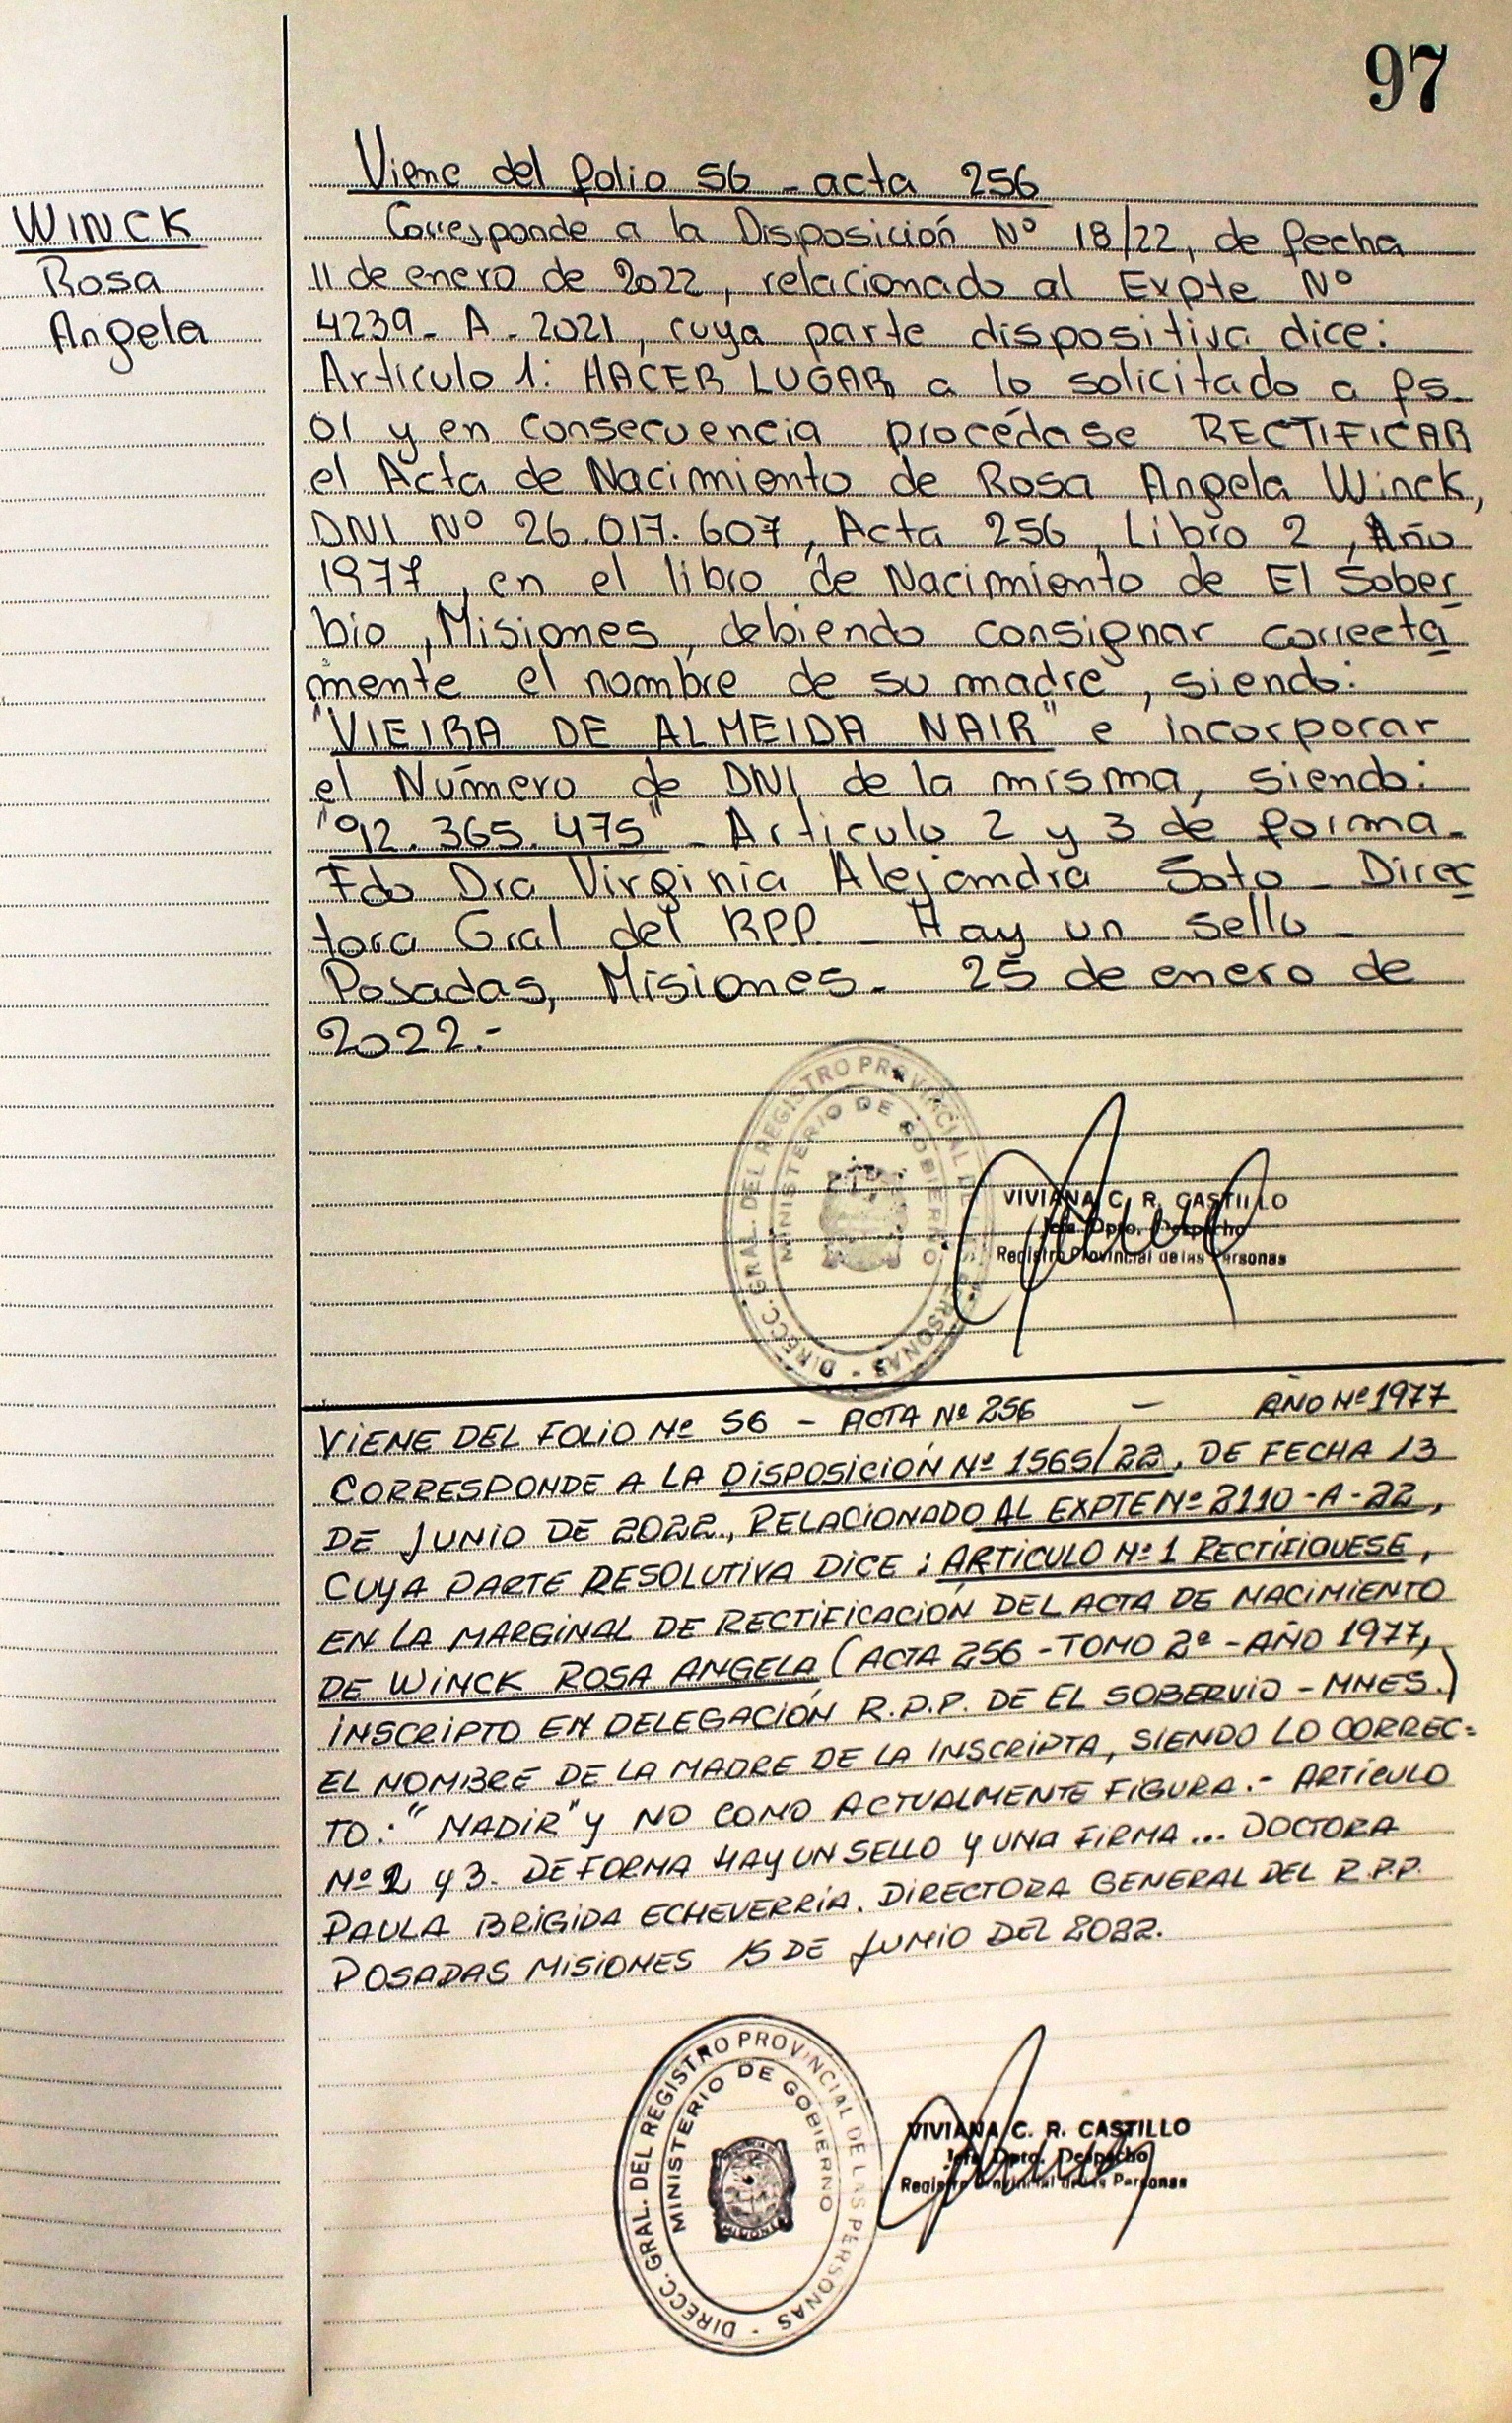 97
WINCK
Rosa
Angela
Viene del folio 56 - acta 256
Corresponde a la Disposición Nº 18/22, de fecha
11 de enero de 2022, relacionado al Expte Nº
4239- A - 2021, cuya parte dispositiva dice:
Artículo 1: HACER LUGAR a lo solicitado a fs.
01 y en consecuencia procédase RECTIFICAR
el Acta de Nacimiento de Rosa Angela Winck,
DNI Nº 26.017.607, Acta 256, Libro 2, Año
1977, en el libro de Nacimiento de El Sober
bio, Misiones, debiendo consignar correcta
mente el nombre de su madre, siendo:
"VIEIRA DE ALMEIDA NAIR" e incorporar
el Número de DNI de la misma, siendo:
"92.365.475" - Articulo 2 y 3 de forma.
Fdo Dra Virginia Alejandra Soto - Direc
tora Gral del RPP - Hay un sello -
Posadas, Misiones. 25 de enero de
2022.-
DIRECC. GRAL. DEL REGISTRO PROVINCIAL DE LAS PERSONAS -
MINISTERIO DE GOBIERNO
VIVIANA C. R. CASTILLO
Jefa Dpto. Despacho
Registro Provincial de las Personas
VIENE DEL FOLIO Nº 56 - ACTA Nº 256 - AÑO Nº 1977
CORRESPONDE A LA DISPOSICIÓN Nº 1565/22, DE FECHA 13
DE JUNIO DE 2022., RELACIONADO AL EXPTE Nº 2110-A-22,
CUYA PARTE RESOLUTIVA DICE: ARTICULO Nº 1 RECTIFIQUESE,
EN LA MARGINAL DE RECTIFICACIÓN DEL ACTA DE NACIMIENTO
DE WINCK ROSA ANGELA (ACTA 256 - TOMO 2º - AÑO 1977,
INSCRIPTO EN DELEGACIÓN R.P.P. DE EL SOBERVIO - MNES.)
EL NOMBRE DE LA MADRE DE LA INSCRIPTA, SIENDO LO CORREC=
TO: "NADIR" Y NO COMO ACTUALMENTE FIGURA.- ARTÍCULO
Nº 2 y 3. DE FORMA HAY UN SELLO Y UNA FIRMA... DOCTORA
PAULA BRIGIDA ECHEVERRÍA. DIRECTORA GENERAL DEL R.P.P.
POSADAS MISIONES 15 DE JUNIO DEL 2022.
DIRECC. GRAL. DEL REGISTRO PROVINCIAL DE LAS PERSONAS -
MINISTERIO DE GOBIERNO
VIVIANA C. R. CASTILLO
Jefa Dpto. Despacho
Registro Provincial de las Personas